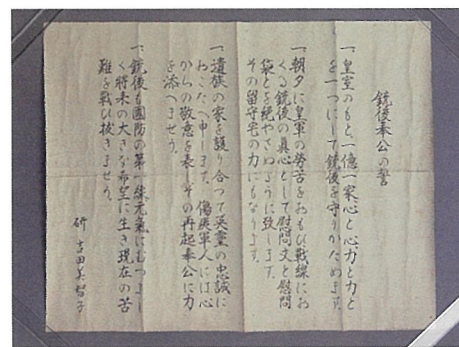 銃後奉公の誓
一、皇室のもと、一億一家心と心、力と力と
を一つにして銃後を守りかためます。
一、朝夕に皇軍の労苦をおもひ戦線にお
くる銃後の真心として慰問文と慰問
袋とを絶やさぬように致します。
その留守宅の力にもなります。
一、遺族の家を護り合つて英霊の忠誠に
おこたへ申します。傷痍軍人には心
からの敬意を表しその再起奉公に力
を添へませう。
一、銃後も国防の第一線元気にむつまし
く将来の大きな希望に生き現在の苦
難を戦ひ抜きませう。
研 吉田美智子